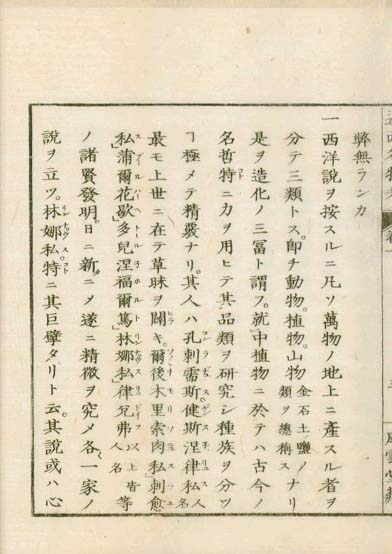 弊無ランカ
一西洋說ヲ按スルニ凡ソ萬物ノ地上ニ產スル者ヲ
分テ三類トス。卽チ動物。植物。山物 金石土鹽ノ類ヲ總稱ス ナリ
是ヲ造化ノ三冨ト謂フ。就中植物ニ於テハ古今ノ
名哲特ニ力ヲ用ヒテ其品類ヲ研究シ種族ヲ分ツ
ヿ極メテ精嚴ナリ。其人ハ孔剌需斯健斯涅律私 人名
最モ上世ニ在テ草昧ヲ闢キ。爾後木里索肉私剌愈
私蒲爾花歇多兒涅福爾篤林娜私律兒弗 以上皆人名 等
ノ諸賢發明。日ニ新ニメ遂ニ精微ヲ究メ各一家ノ
說ヲ立ツ。林娜私特ニ其巨擘タリト云。其說或ハ心